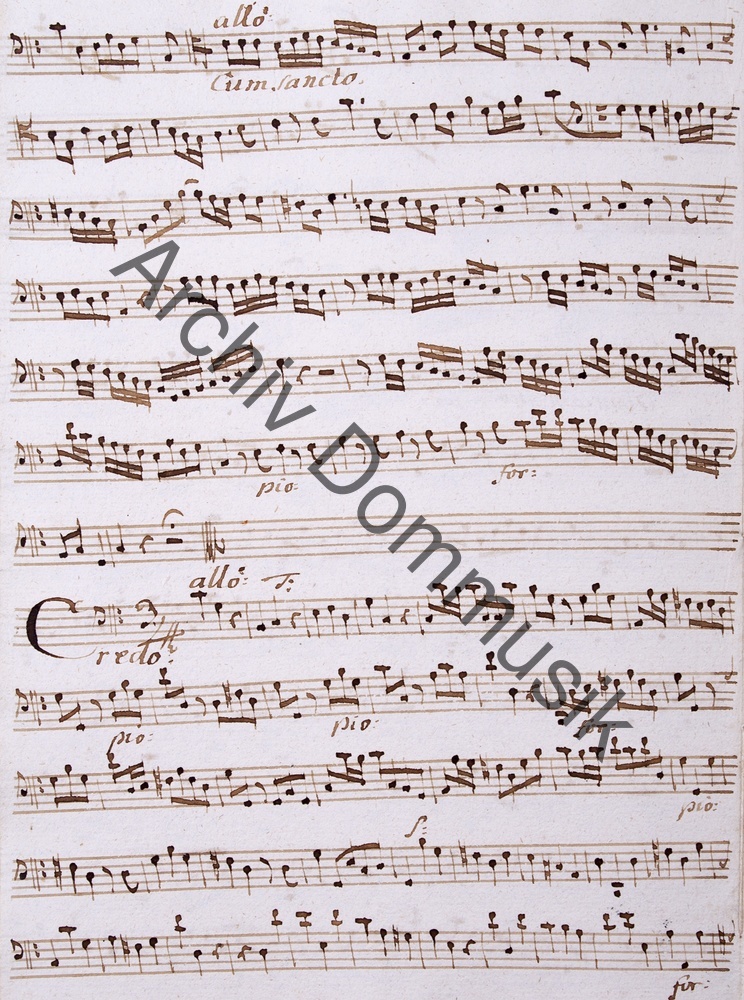 allo:
Cum Sancto.
pio: for:
allo: T:
Credo:
pio: pio: for:
pio:
f:
for:
Archiv Dommusik